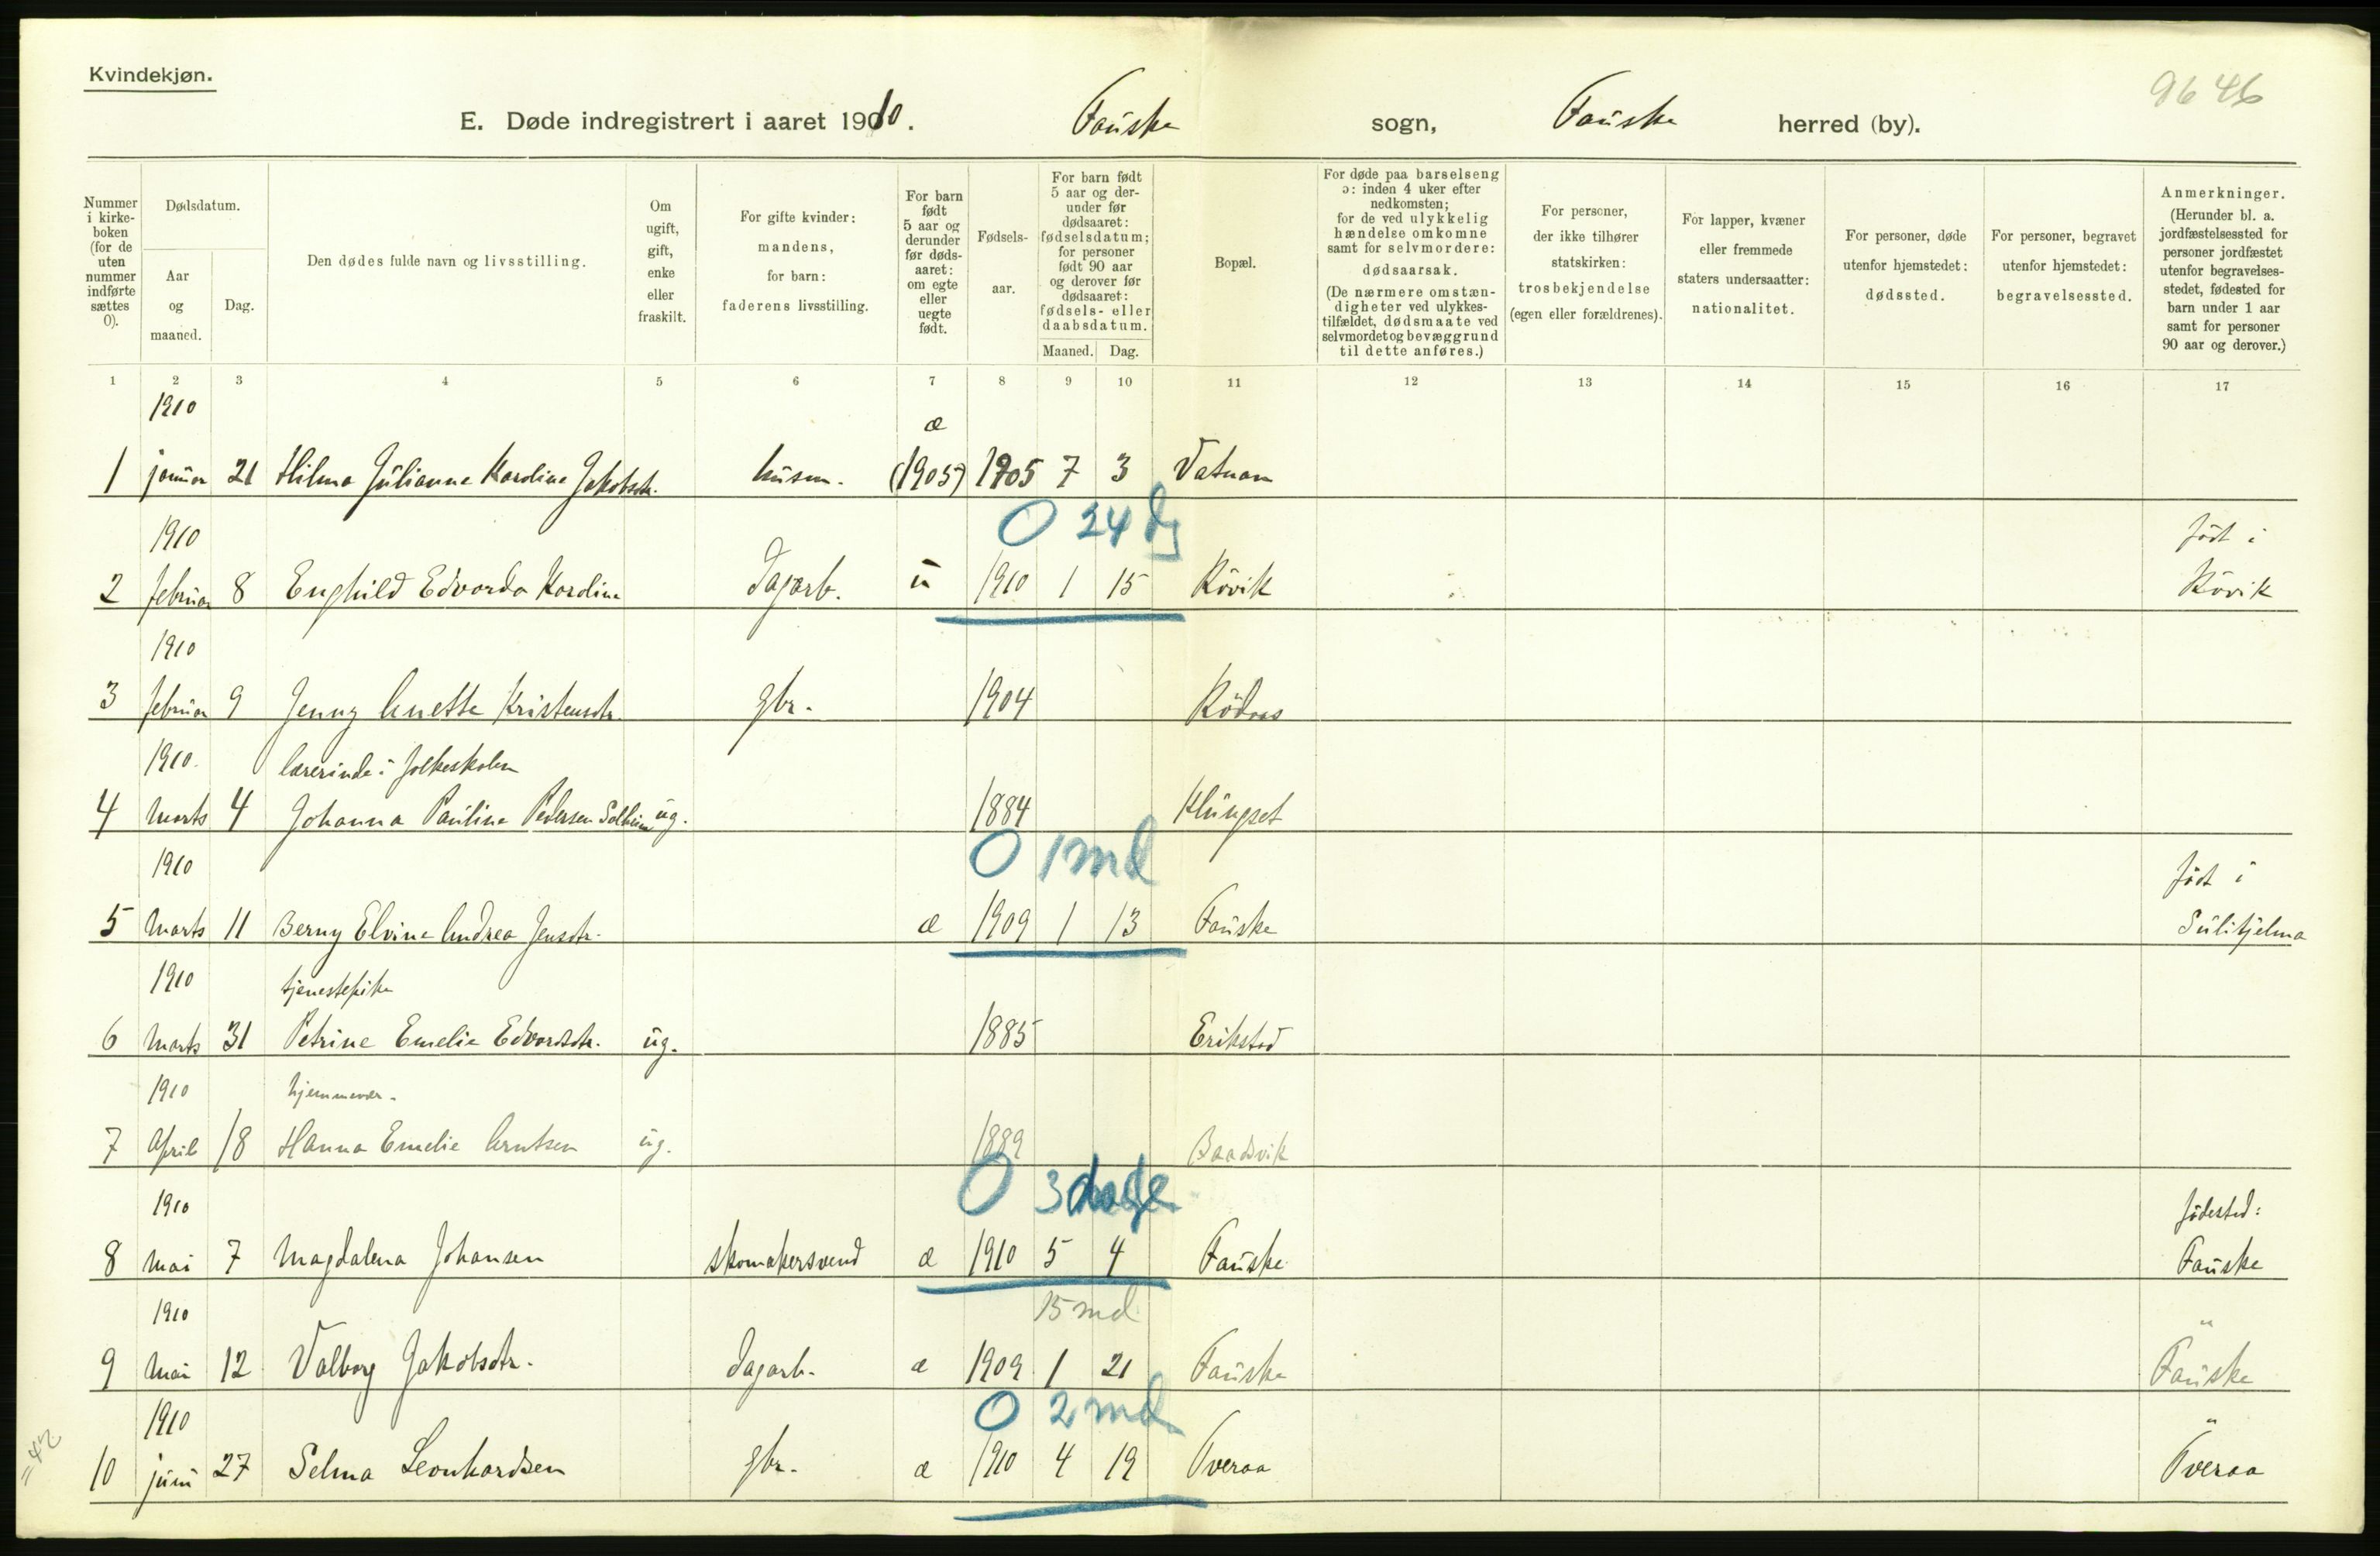 Kvindekjøn.
9646
E. Døde indregistrert i aaret 1910. Fauske sogn, Fauske herred (by).
Nummer i kirkeboken (for de uten nummer indførte sættes 0).
Dødsdatum.
Aar og maaned.
Dag.
Den dødes fulde navn og livsstilling.
Om ugift, gift, enke eller fraskilt.
For gifte kvinder: mandens, for barn: faderens livsstilling.
For barn født 5 aar og derunder før dødsaaret: om egte eller uegte født.
Fødselsaar.
For barn født 5 aar og derunder før dødsaaret: fødselsdatum; for personer født 90 aar og derover før dødsaaret: fødsels- eller daabsdatum.
Maaned. Dag.
Bopæl.
For døde paa barselseng ɔ: inden 4 uker efter nedkomsten; for de ved ulykkelig hændelse omkomne samt for selvmordere: dødsaarsak. (De nærmere omstændigheter ved ulykkestilfældet, dødsmaate ved selvmordet og bevæggrund til dette anføres.)
For personer, der ikke tilhører statskirken: trosbekjendelse (egen eller forældrenes).
For lapper, kvæner eller fremmede staters undersaatter: nationalitet.
For personer, døde utenfor hjemstedet: dødssted.
For personer, begravet utenfor hjemstedet: begravelsessted.
Anmerkninger. (Herunder bl. a. jordfæstelsessted for personer jordfæstet utenfor begravelsesstedet, fødested for barn under 1 aar samt for personer 90 aar og derover.)
1 2 3 4 5 6 7 8 9 10 11 12 13 14 15 16 17
1910 æ
1 januar 21 Hilma Julianne Karoline Jakobsdtr. husm. (1905) 1905 7 3 Vatnan
1910 0 24 dg født i
2 februar 8 Enghild Edvarda Karoline dagarb. u 1910 1 15 Røvik Røvik
1910
3 februar 9 Jenny Anette Kristensdtr. gbr. 1904 Rødaas
1910. lærerinde i folkeskolen
4 Marts 4 Johanna Pauline Pedersen Solheim ug. 1884 Klungset
1910 0 1 md født i
5 Marts 11 Berny Elvine Andrea Jensdtr. æ 1909 1 13 Fauske Sulitjelma
1910 tjenestepike
6 Marts 31 Petrine Emelie Edvardsdtr. ug. 1885 Erikstad
1910 hjemmevær.
7 April 18 Hanna Emelie Arntsen ug. 1889 Baadsvik
1910 0 3 dage fødested:
8 Mai 7 Magdalena Johansen skomakersvend æ 1910 5 4 Fauske Fauske
1910 15 md "
9 Mai 12 Valborg Jakobsdtr. dagarb. æ 1909 1 21 Fauske Fauske
1910 0 2 md "
10 juni 27 Selma Leonhardsen gbr. æ 1910 4 19 Tveraa Tveraa
=42